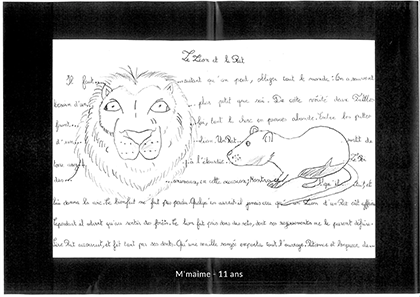 Le Lion et le Rat
Il faut autant qu'on peut, obliger tout le monde : On a souvent
besoin d'un plus petit que soi. De cette vérité deux Fables
feront foi, tant la chose en preuves abonde. Entre les pattes
d'un Lion, Un Rat
à l'étourdie
occasion, Montra
lui donna la vie. Ce bienfait ne fut pas perdu. Quelqu'un aurait-il jamais cru qu'un Lion d'un Rat eût affaire
Cependant il advint qu'au sortir des forêts, Ce Lion fut pris dans des rets, dont ses rugissements ne le purent défaire.
Sire Rat accourut, et fit tant par ses dents, Qu'une maille rongée emporta tout l'ouvrage. Patience et longueur de
M'maime - 11 ans